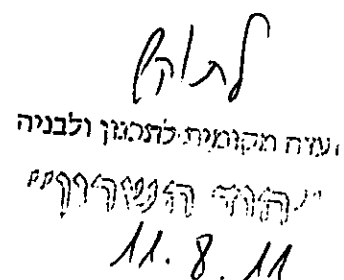 לתוקף
ועדה מקומית לתכנון ולבניה
"הוד השרון"
11.8.11